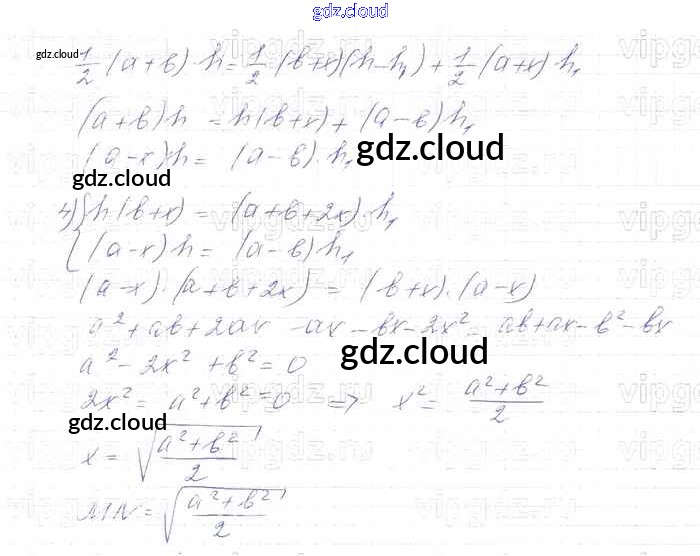 gdz.cloud
gdz.cloud
1/2 (a+в) h = 1/2 (в+x)(h-h₁) + 1/2 (a+x) h₁
(a+в)h = h(в+x) + (a-в)h₁
(a-x)h = (a-в)·h₁
gdz.cloud
gdz.cloud
4) { h(в+x) = (a+в+2x)·h₁
(a-x)h = (a-в)h₁
(a-x)·(a+в+2x) = (в+x)·(a-x)
a²+aв+2ax-ax-вx-2x² = aв+ax-в²-вx
a²-2x²+в²=0
gdz.cloud
2x² = a²+в²=0 => x² = a²+в²/2
gdz.cloud
x = √a²+в²/2
MN = √a²+в²/2